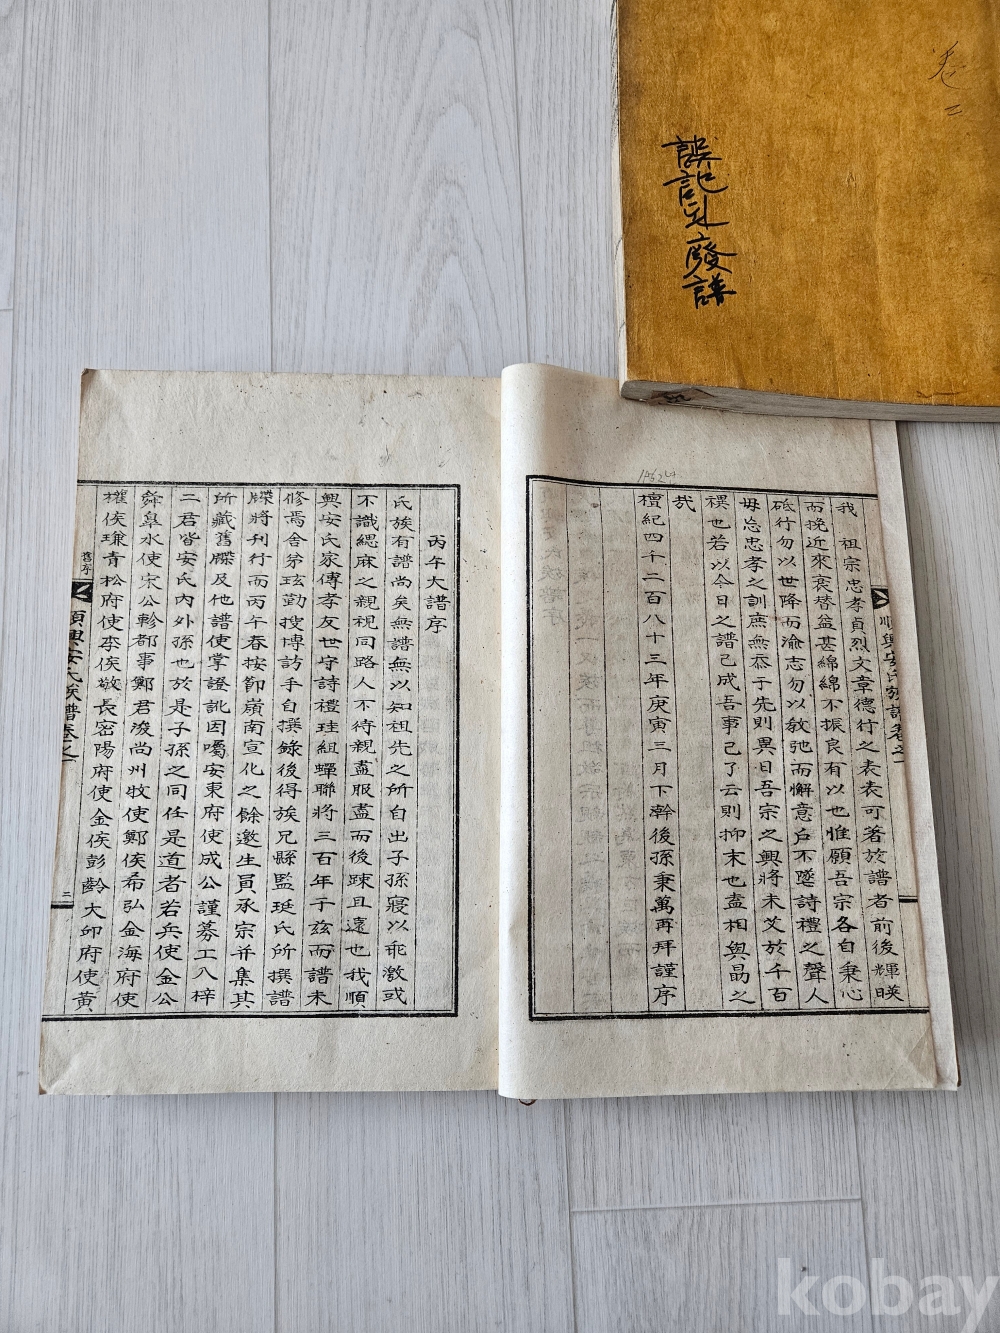 卷二
誤記立廢譜
順興安氏族譜卷之一
我 祖宗忠孝貞烈文章德行之表表可著於譜者前後輝暎
而挽近來衰替益甚綿綿不振良有以也惟願吾宗各自秉心
砥行勿以世降而渝志勿以敓弛而懈意戶不墜詩禮之聲人
毋忘忠孝之訓庶無忝于先則異日吾宗之興將未艾於千百
禩也若以今日之譜已成吾事已了云則抑末也盍相與勗之
哉
檀紀四千二百八十三年庚寅三月下澣後孫秉萬再拜謹序
丙午大譜序
氏族有譜尚矣無譜無以知祖先之所自出子孫寢以乖激或
不識緦麻之親視同路人不待親盡服盡而後疎且遠也我順
興安氏家傳孝友世守詩禮珪組蟬聯將三百年于玆而譜未
修焉舍弟玹勤搜博訪手自撰錄後得族兄縣監珽氏所撰譜
牒將刊行而丙午春按節嶺南宣化之餘邀生員承宗并集其
所藏舊牒及他譜使掌證訛因囑安東府使成公謹募工入梓
二君皆安氏內外孫也於是子孫之同任是道者若兵使金公
舜皐水使宋公軫都事鄭君浚尚州牧使鄭侯希弘金海府使
權侯璟青松府使李侯敬長密陽府使金侯彭齡大邱府使黃
舊序
順興安氏族譜卷之一
二
kobay